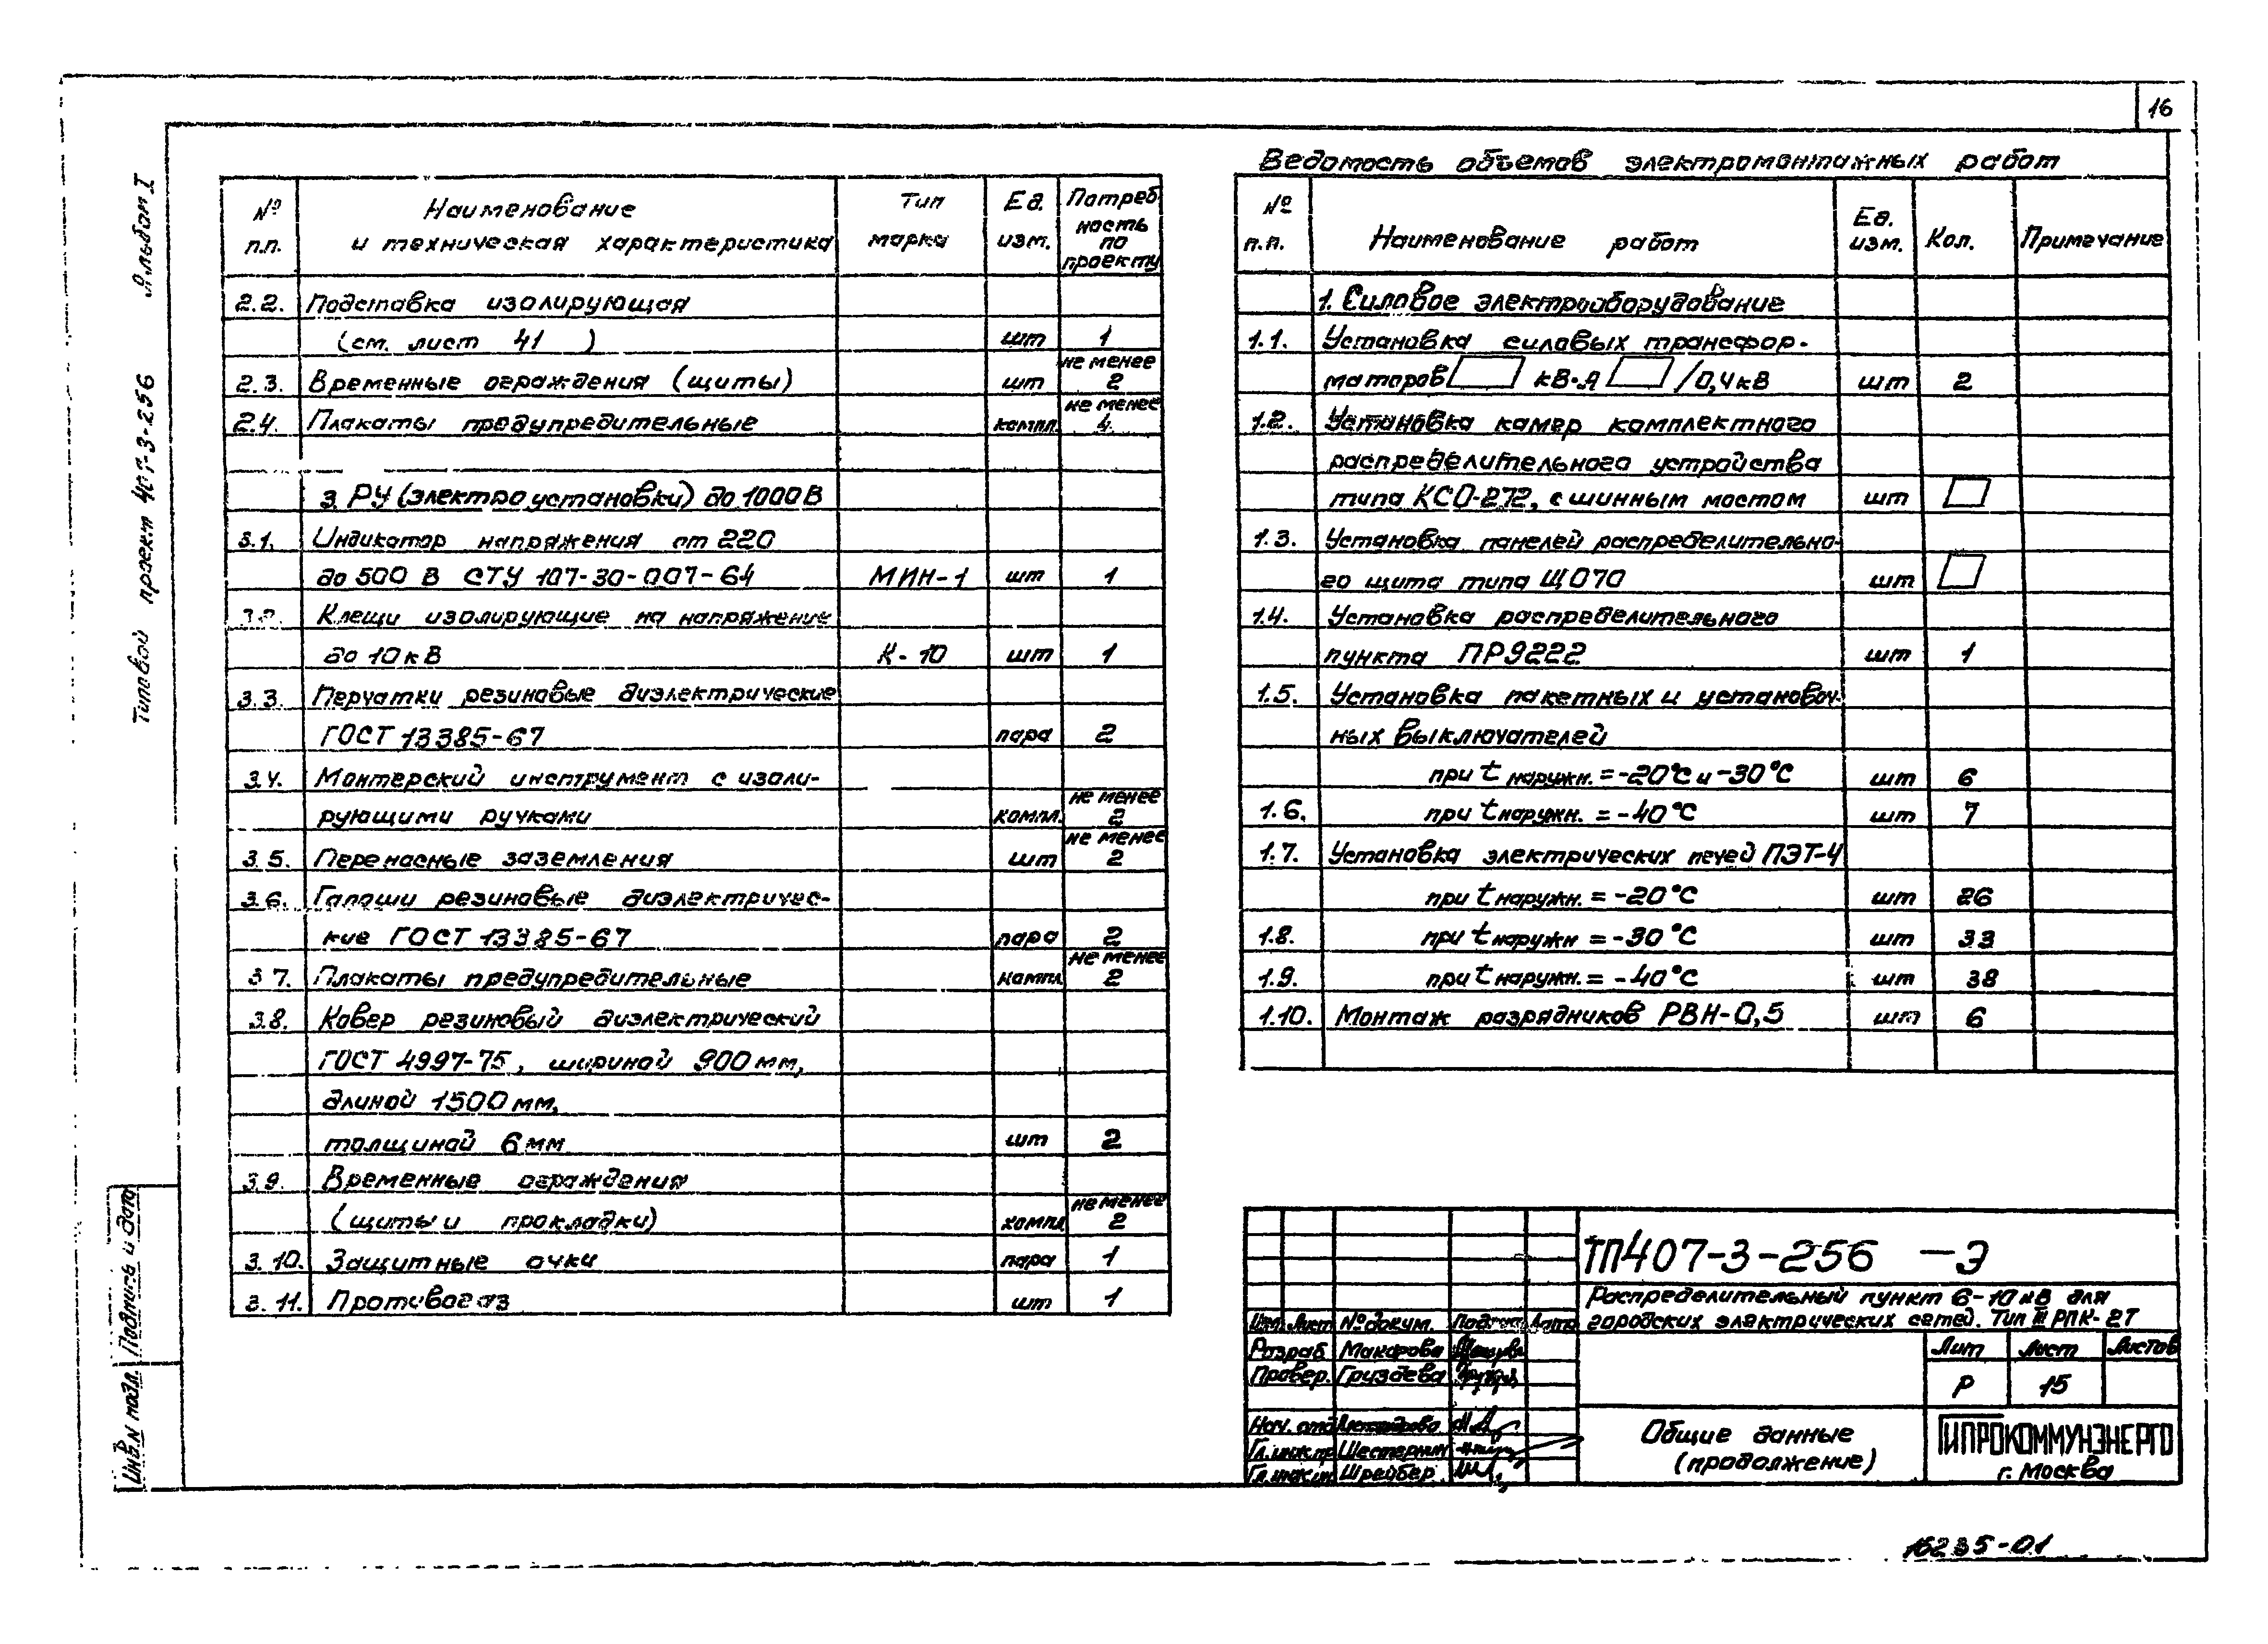 16
Альбом I
Типовой проект 407-3-256
№ п.п. Наименование и техническая характеристика Тип марка Ед. изм. Потребность по проекту
2.2. Подставка изолирующая
(см. лист 41 ) шт 1
2.3. Временные ограждения (щиты) шт не менее 2
2.4. Плакаты предупредительные компл. не менее 4
3. РУ (электроустановки) до 1000 В
3.1. Индикатор напряжения от 220
до 500 В СТУ 107-30-007-64 МИН-1 шт 1
3.2. Клещи изолирующие на напряжение
до 10 кВ К-10 шт 1
3.3. Перчатки резиновые диэлектрические
ГОСТ 13385-67 пара 2
3.4. Монтерский инструмент с изоли-
рующими ручками компл. не менее 2
3.5. Переносные заземления шт не менее 2
3.6. Галоши резиновые диэлектричес-
кие ГОСТ 13385-67 пара 2
3.7. Плакаты предупредительные компл не менее 2
3.8. Ковер резиновый диэлектрический
ГОСТ 4997-75, шириной 900 мм,
длиной 1500 мм,
толщиной 6 мм шт 2
3.9. Временные ограждения
(щиты и прокладки) компл не менее 2
3.10. Защитные очки пара 1
3.11. Противогаз шт 1
Ведомость объемов электромонтажных работ
№ п.п. Наименование работ Ед. изм. Кол. Примечание
1. Силовое электрооборудование
1.1. Установка силовых трансфор-
маторов кВ·А /0,4кВ шт 2
1.2. Установка камер комплектного
распределительного устройства
типа КСО-272, с шинным мостом шт
1.3. Установка панелей распределительно-
го щита типа ЩО70 шт
1.4. Установка распределительного
пункта ПР9222 шт 1
1.5. Установка пакетных и установоч-
ных выключателей
при t наружн. = -20°С и -30°С шт 6
1.6. при t наружн. = -40°С шт 7
1.7. Установка электрических печей ПЭТ-4
при t наружн. = -20°С шт 26
1.8. при t наружн = -30°С шт 33
1.9. при t наружн. = -40°С шт 38
1.10. Монтаж разрядников РВН-0,5 шт 6
ТП407-3-256 -Э
Распределительный пункт 6-10 кВ для
городских электрических сетей. Тип III РПК-2Т
Изм Лист № докум. Подпись Дата
Разраб. Макарова
Провер. Груздева
Нач. отд
Гл.инж.пр Шестернин
Гл.инж.ин Шрейбер
Лит Лист Листов
Р 15
Общие данные
(продолжение)
ГИПРОКОММУНЭНЕРГО
г. Москва
Инв.N подл. Подпись и дата
16235-01